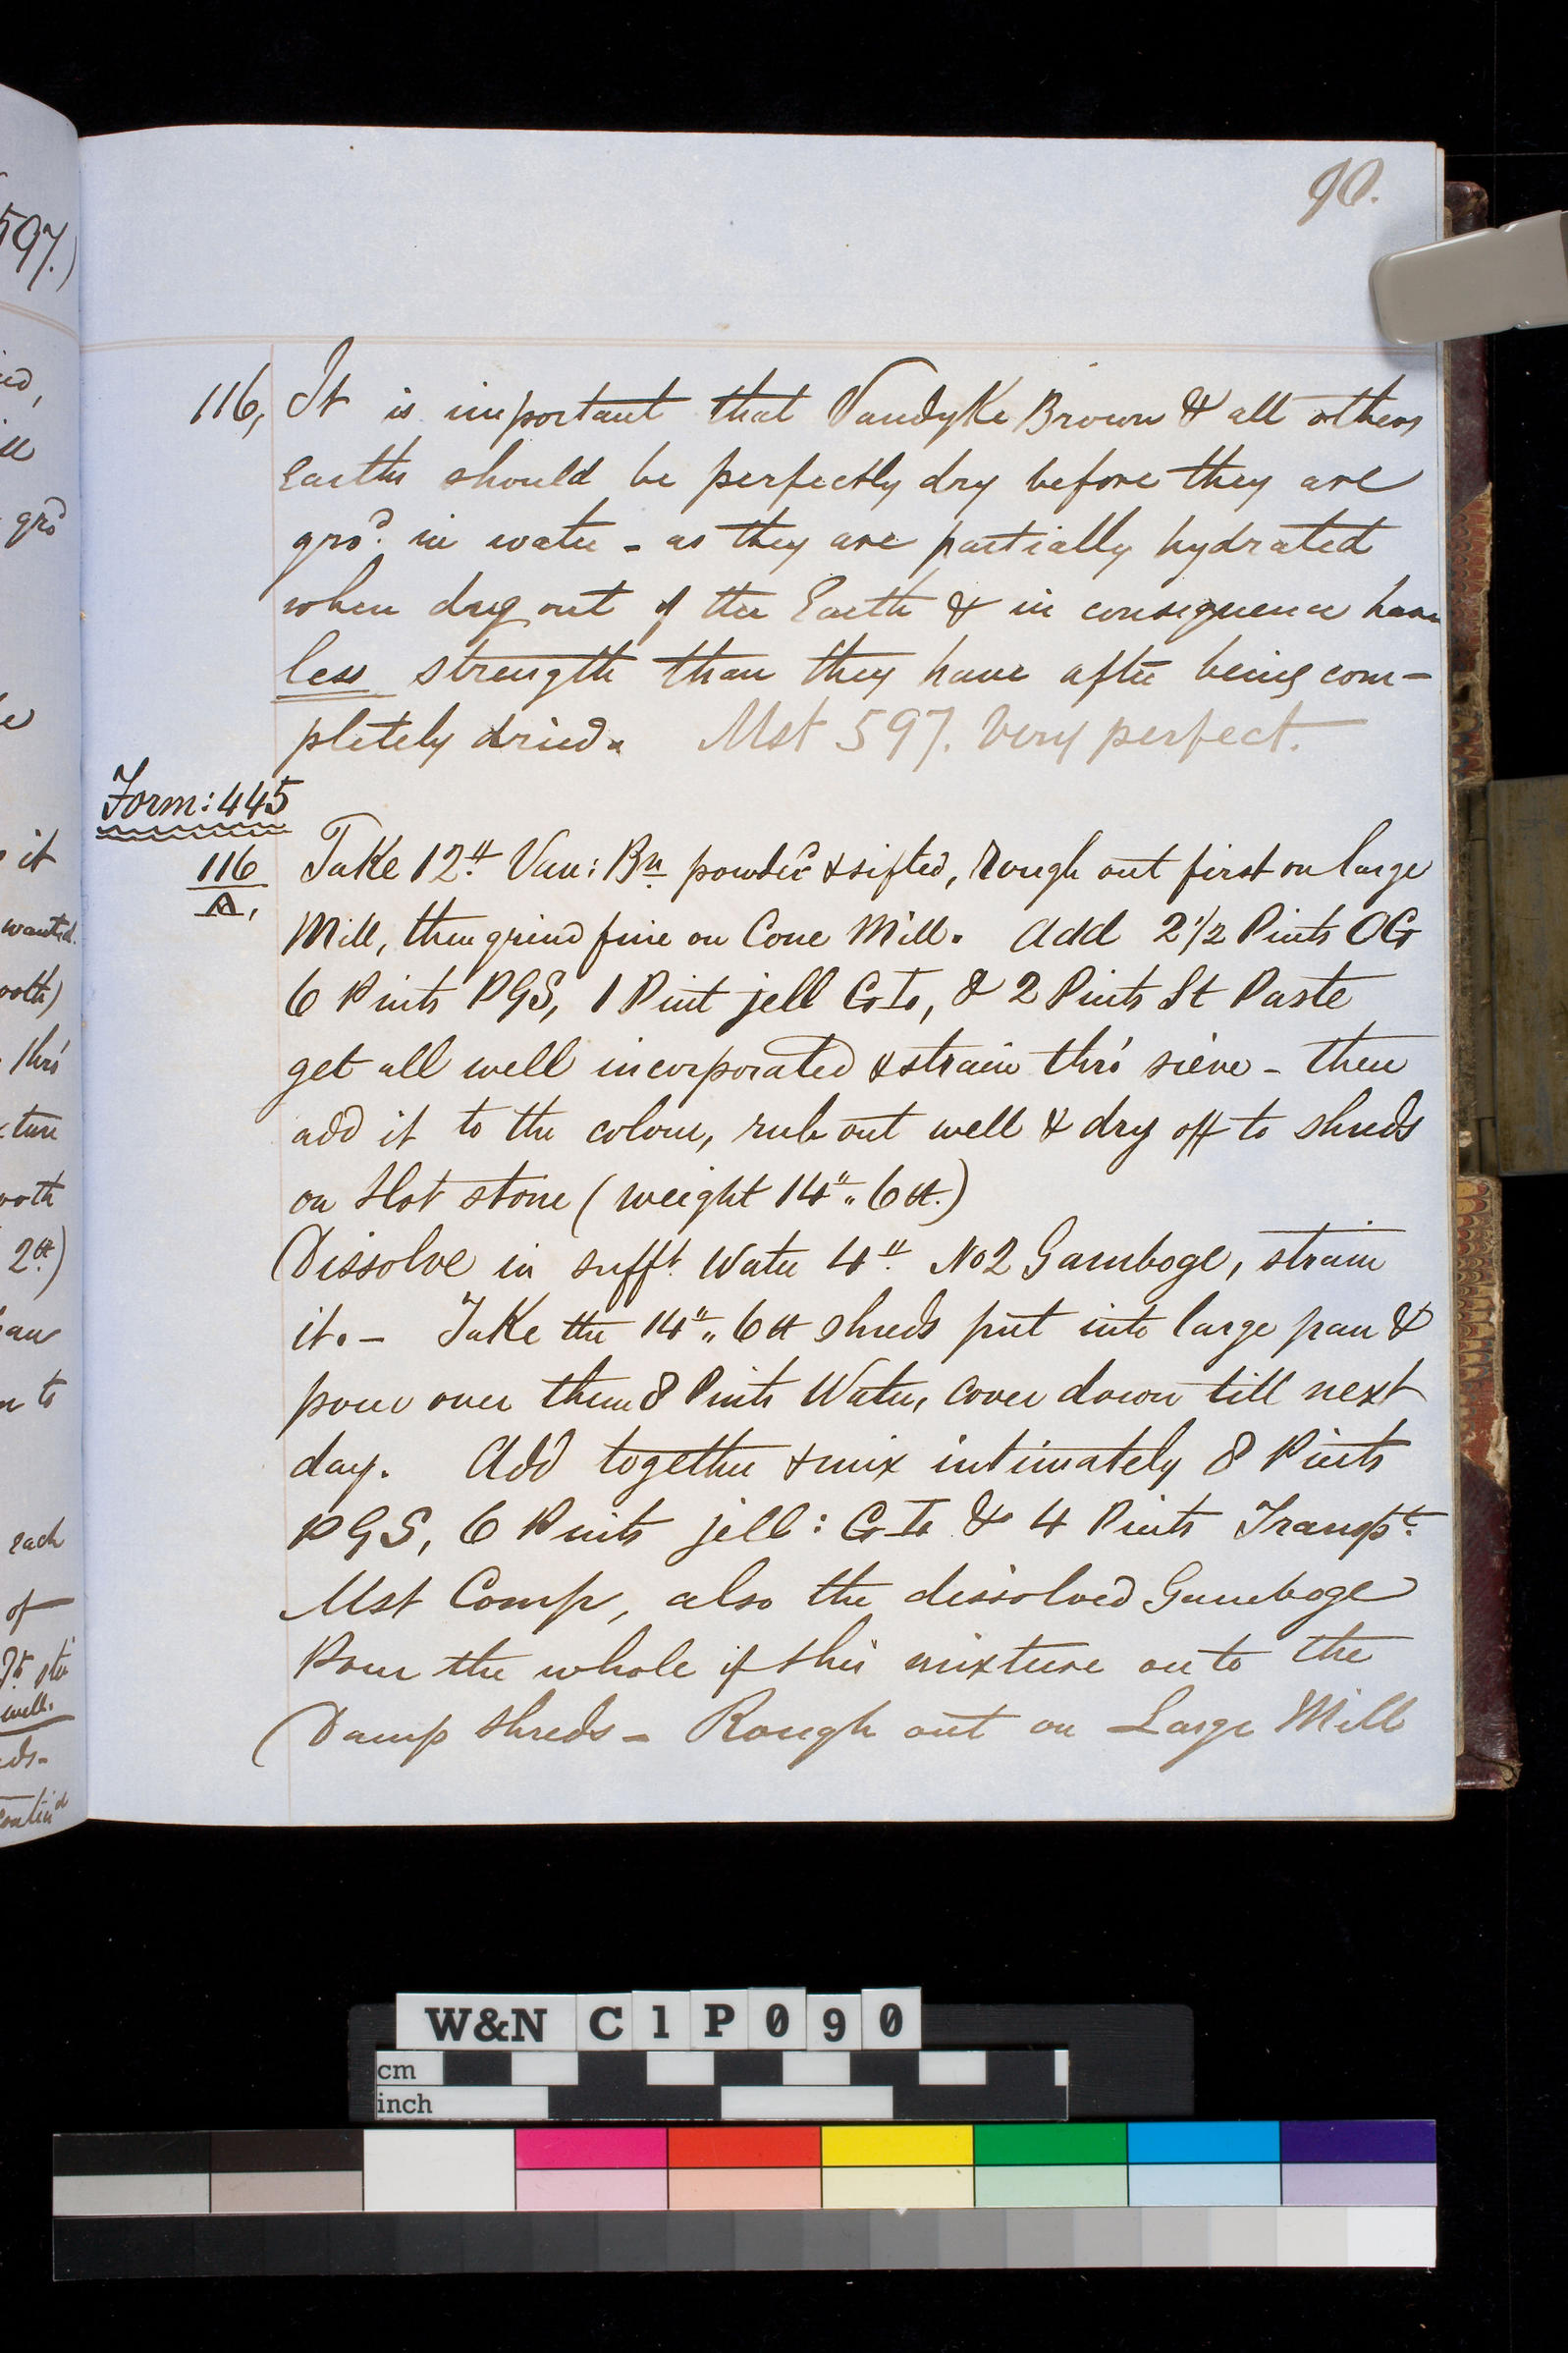 90.
116, It is important that Vandyke Brown & all others
Earths should be perfectly dry before they are
gro.d in water - as they are partially hydrated
when dug out of the Earth & in consequence have
less strength than they have after being com-
pletely dried. Mst 597. Very perfect.
Form: 445
116 A, Take 12 lb Van: Bn powdd & sifted, rough out first on large
Mill, then grind fine on Cone Mill. Add 2 1/2 Pints OG
6 Pints PGS, 1 Pint jell G To, & 2 Pints St Paste
get all well incorporated & strain thro' sieve - then
add it to the colour, rub out well & dry off to shreds
on Hot stone (weight 14 " 6 lb.)
Dissolve in sufft. Water 4 lb No 2 Gamboge, strain
it. - Take the 14 " 6 lb shreds put into large pan &
pour over them 8 Pints Water, cover down till next
day. Add together & mix intimately 8 Pints
PGS, 6 Pints jell: G To & 4 Pints Transpt.
Mst Comp, also the dissolved Gamboge
Pour the whole of this mixture on to the
Damp shreds - Rough out on Large Mill
597.)
gro.d
it
wanted.
thro'
2 lb)
to
each
of
well.
Contind
W&N C1P090
cm
inch